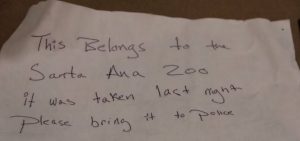 This Belongs to the
Santa Ana Zoo
it was taken last night
Please bring it to police